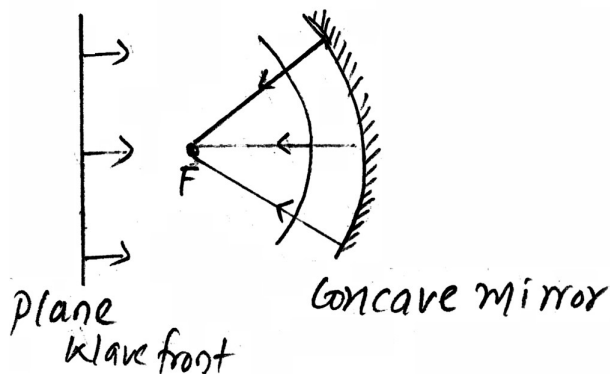 F
Plane
Wavefront
Concave mirror